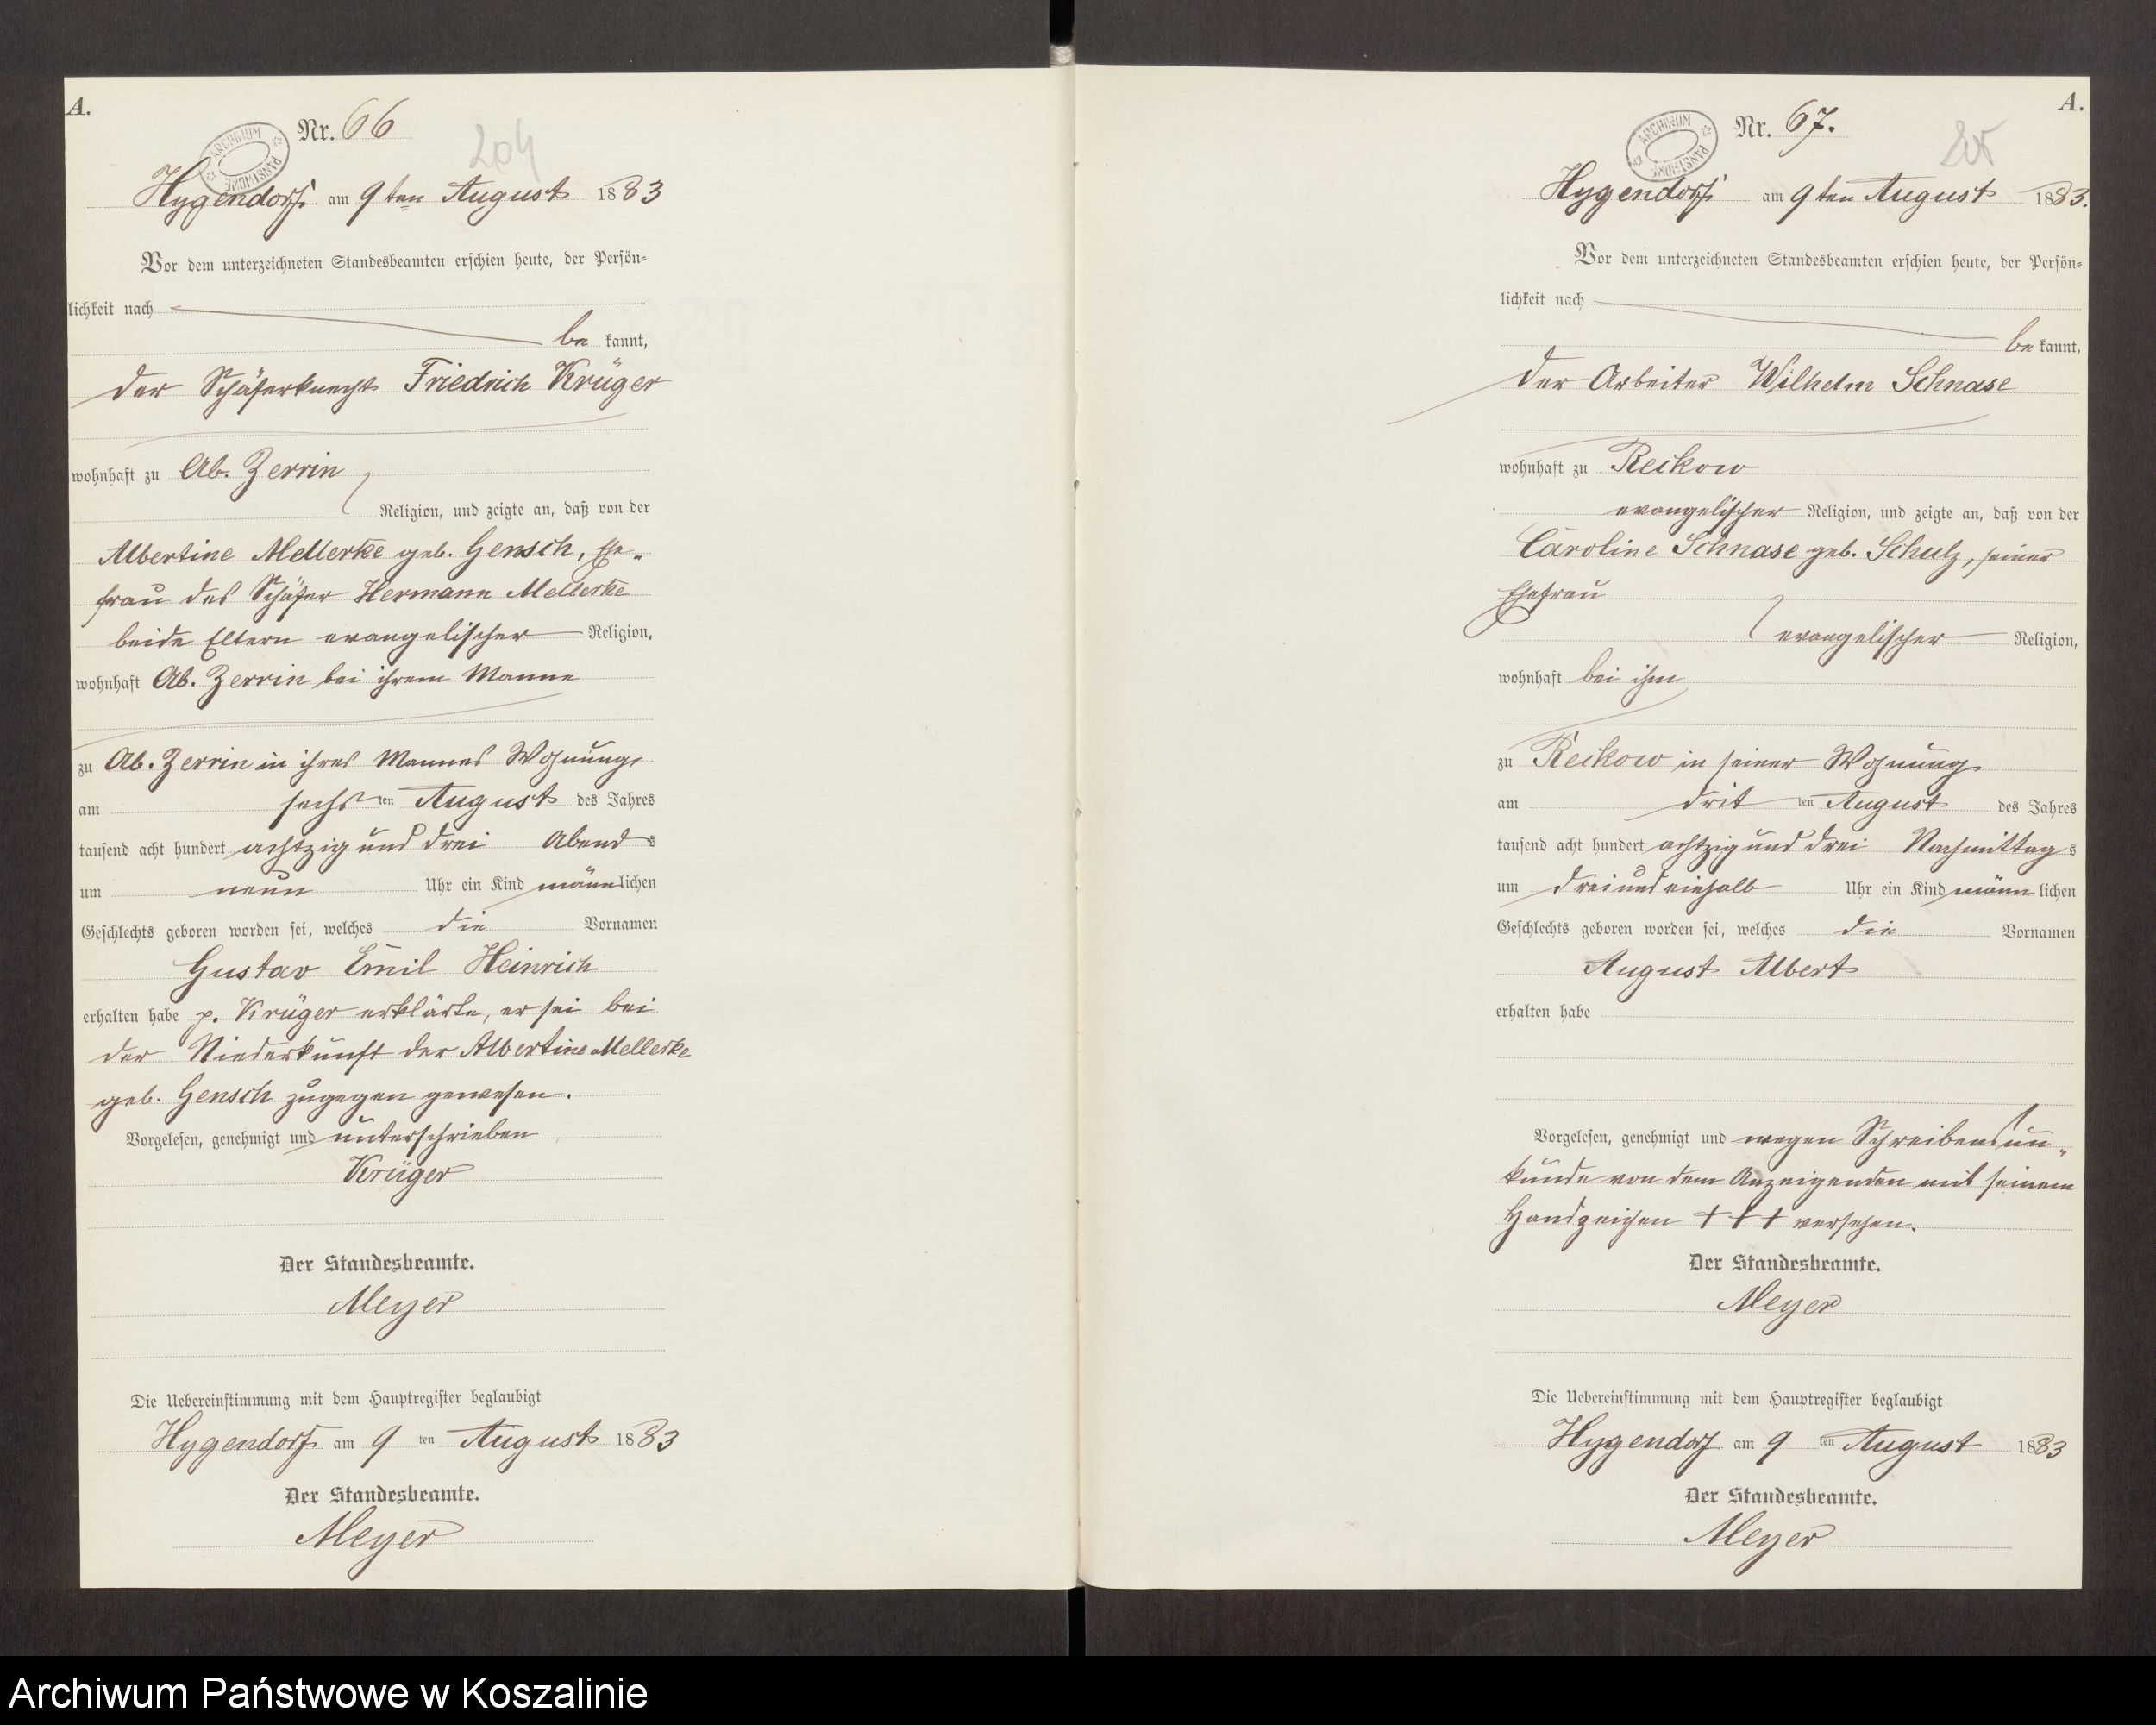 A.
Nr. 66
204
ARCHIWUM PAŃSTWOWE
Hygendorf am 9ten August 1883
Vor dem unterzeichneten Standesbeamten erschien heute, der Persön-
lichkeit nach
be kannt,
der Schäferknecht Friedrich Krüger
wohnhaft zu Ab. Zerrin
Religion, und zeigte an, daß von der
Albertine Mellerke geb. Gensch, Ehe-
frau des Schäfer Hermann Mellerke
beide Eltern evangelischer Religion,
wohnhaft Ab. Zerrin bei ihrem Manne
zu Ab. Zerrin in ihres Mannes Wohnung,
am sechsten August des Jahres
tausend acht hundert achtzig und drei Abends
um neun Uhr ein Kind männlichen
Geschlechts geboren worden sei, welches die Vornamen
Gustav Emil Heinrich
erhalten habe p. Krüger erklärte, er sei bei
der Niederkunft der Albertine Mellerke
geb. Gensch zugegen gewesen.
Vorgelesen, genehmigt und unterschrieben
Krüger
Der Standesbeamte.
Meyer
Die Uebereinstimmung mit dem Hauptregister beglaubigt
Hygendorf am 9 ten August 1883
Der Standesbeamte.
Meyer
A.
Nr. 67.
205
ARCHIWUM PAŃSTWOWE
Hygendorf am 9ten August 1883.
Vor dem unterzeichneten Standesbeamten erschien heute, der Persön-
lichkeit nach
be kannt,
der Arbeiter Wilhelm Schnase
wohnhaft zu Reckow
evangelischer Religion, und zeigte an, daß von der
Caroline Schnase geb. Schulz, seiner
Ehefrau
evangelischer Religion,
wohnhaft bei ihm
zu Reckow in seiner Wohnung
am dritten August des Jahres
tausend acht hundert achtzig und drei Nachmittags
um drei und einhalb Uhr ein Kind männlichen
Geschlechts geboren worden sei, welches die Vornamen
August Albert
erhalten habe
Vorgelesen, genehmigt und wegen Schreibensun-
kunde von dem Anzeigenden mit seinem
Handzeichen +++ versehen.
Der Standesbeamte.
Meyer
Die Uebereinstimmung mit dem Hauptregister beglaubigt
Hygendorf am 9 ten August 1883
Der Standesbeamte.
Meyer
Archiwum Państwowe w Koszalinie